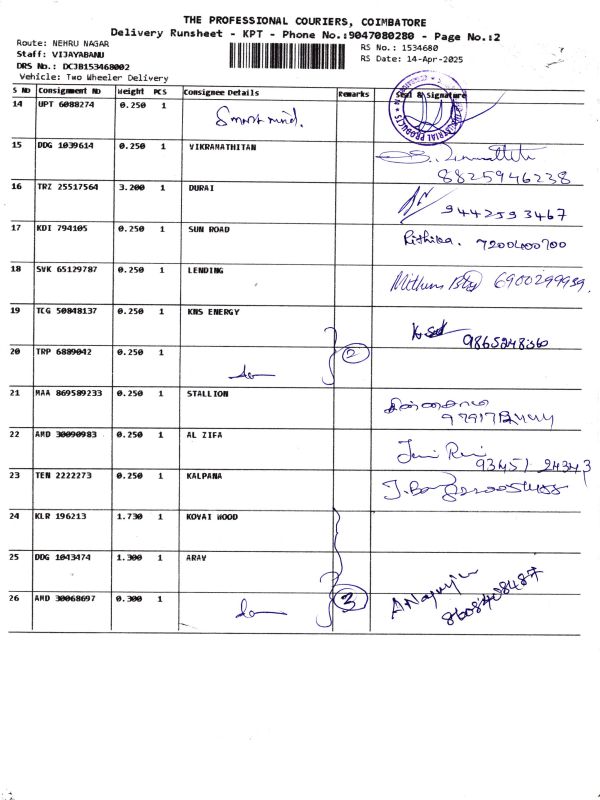 THE PROFESSIONAL COURIERS, COIMBATORE
Delivery Runsheet - KPT - Phone No.:9047080280 - Page No.:2
Route: NEHRU NAGAR
RS No.: 1534680
Staff: VIJAYABANU
RS Date: 14-Apr-2025
DRS No.: DCJB153468002
Vehicle: Two Wheeler Delivery
S No Consignment No Weight PCS Consignee Details Remarks Seal & Signature
14 UPT 6088274 0.250 1 Smart mind.
15 DDG 1039614 0.250 1 VIKRANATHITAN
8825946238
16 TRZ 25517564 3.200 1 DURAI 9442593467
17 KDI 794105 0.250 1 SUN ROAD Rithika. 7200400700
18 SVK 65129787 0.250 1 LENDING 6900299939.
19 TCG 50848137 0.250 1 KNS ENERGY
20 TRP 6889042 0.250 1 do 2
21 MAA 869589233 0.250 1 STALLION
22 AMD 30090983 0.250 1 AL ZIFA
93451 24343
23 TEN 2222273 0.250 1 KALPANA
24 KLR 196213 1.730 1 KOVAI WOOD
25 DDG 1043474 1.300 1 ARAV
26 AMD 30068697 0.300 1 do 3